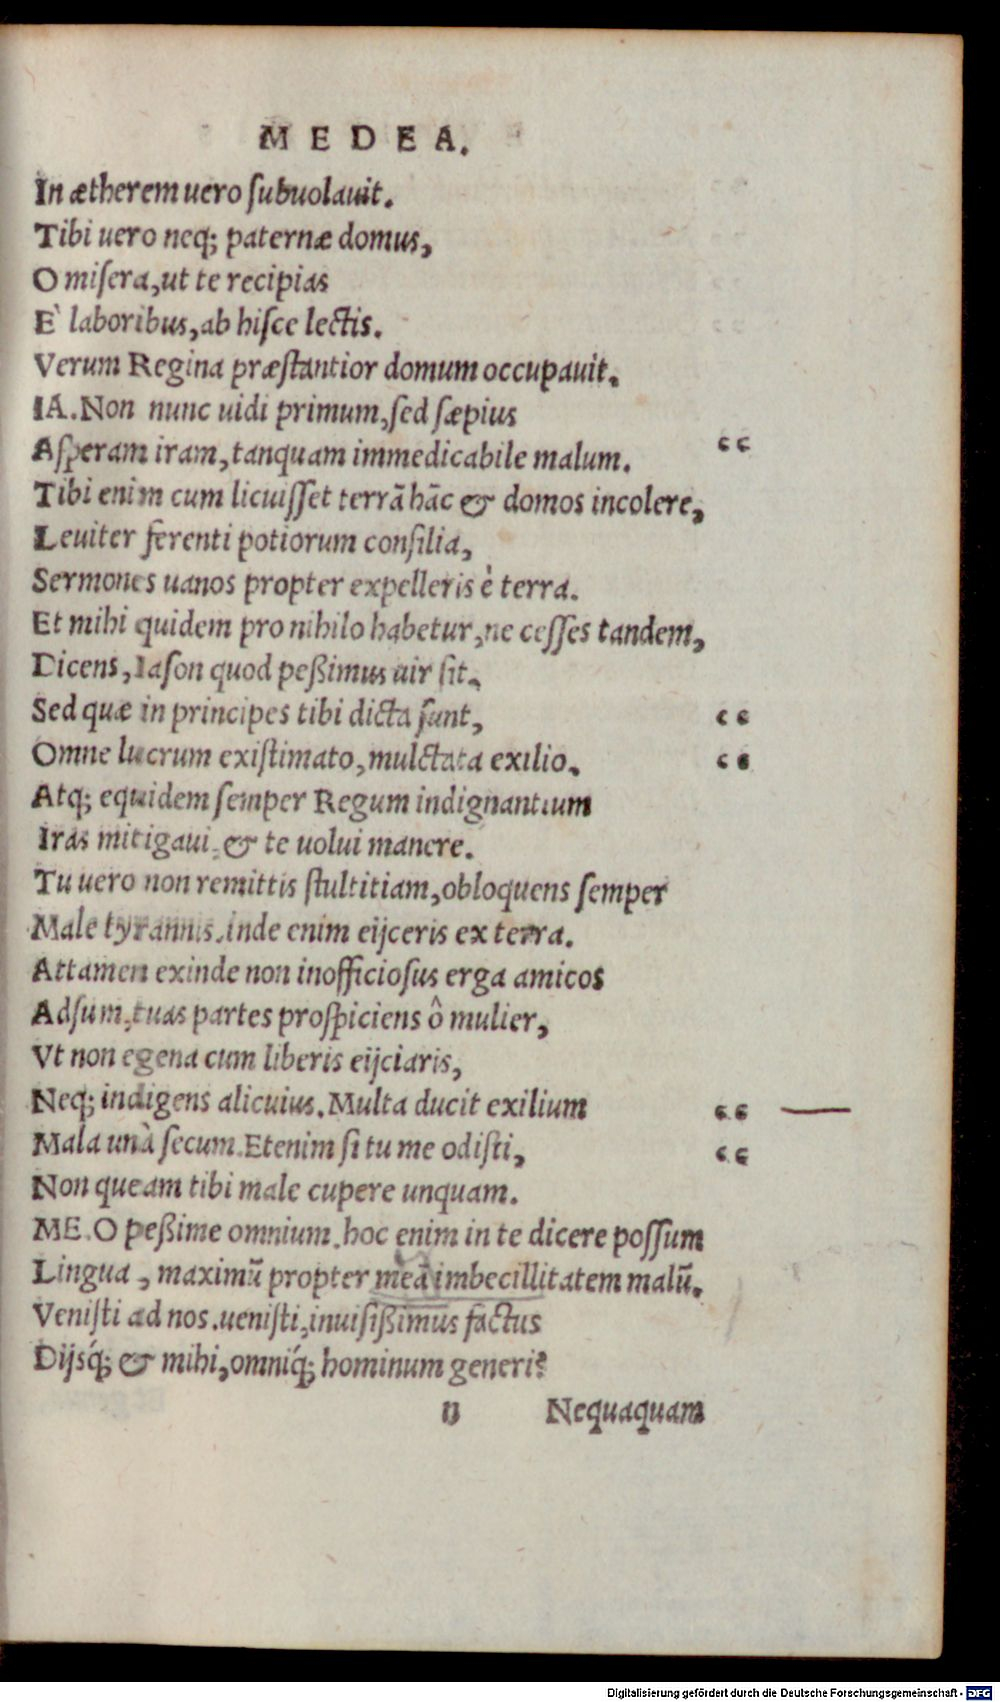 MEDEA.
In ætherem uero ſubuolauit.
Tibi uero neq; paternæ domus,
O miſera, ut te recipias
E` laboribus, ab hiſce lectis.
Verum Regina præſtantior domum occupauit.
IA. Non nunc uidi primum, ſed ſæpius
Aſperam iram, tanquam immedicabile malum. “
Tibi enim cum licuiſſet terrā hāc & domos incolere,
Leuiter ferenti potiorum conſilia,
Sermones uanos propter expelleris è terra.
Et mihi quidem pro nihilo habetur, ne ceſſes tandem,
Dicens, Iaſon quod peßimus uir ſit.
Sed quæ in principes tibi dicta ſunt, “
Omne lucrum exiſtimato, mulctata exilio. “
Atq; equidem ſemper Regum indignantium
Iras mitigaui, & te uolui manere.
Tu uero non remittis ſtultitiam, obloquens ſemper
Male tyrannis. inde enim eijceris ex terra.
Attamen exinde non inofficioſus erga amicos
Adſum, tuas partes proſpiciens ô mulier,
Vt non egena cum liberis eijciaris,
Neq; indigens alicuius. Multa ducit exilium “
Mala unà ſecum. Etenim ſi tu me odiſti, “
Non queam tibi male cupere unquam.
ME. O peßime omnium. hoc enim in te dicere poſſum
Lingua, maximū propter meā imbecillitatem malū.
Veniſti ad nos. ueniſti, inuiſißimus factus
Dijsq́; & mihi, omniq́; hominum generi?
n Nequaquam
Digitalisierung gefördert durch die Deutsche Forschungsgemeinschaft - DFG